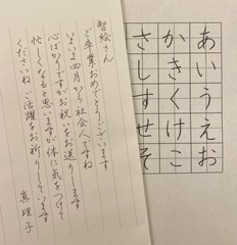 あいうえお
かきくけこ
さしすせそ
智絵さん
ご卒業おめでとうございます
いよいよ四月から社会人ですね
心ばかりですがお祝いをお送りします
忙しくなると思いますが体に気をつけて
くださいね ご活躍をお祈りしています
真理子